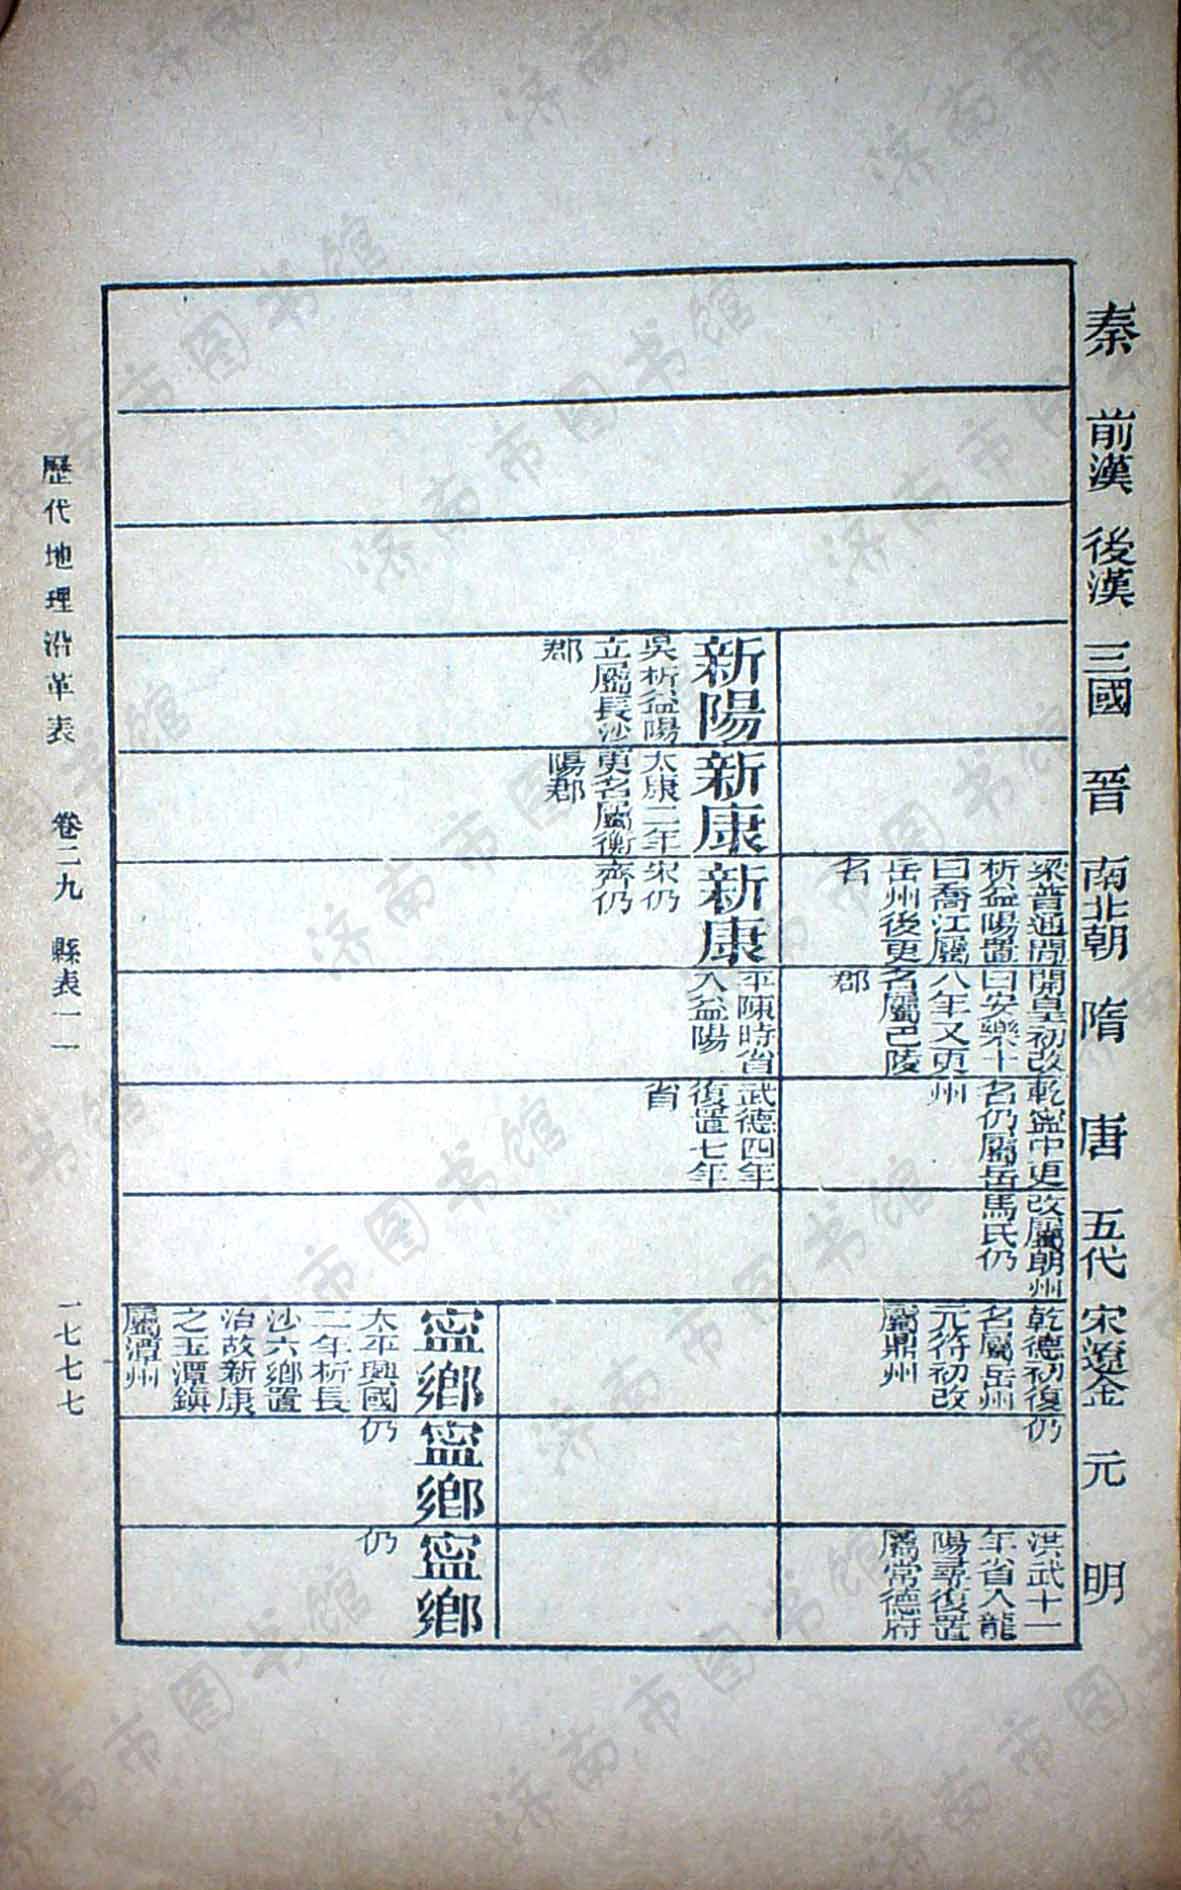 秦
前漢
後漢
三國
晉
南北朝
隋
唐
五代
宋遼金
元
明
梁普通間
析益陽置
曰喬江屬
岳州後更
名
開皇初改
曰安樂十
八年又更
名屬巴陵
郡
乾寧中更
名仍屬岳
州
改屬朗州
馬氏仍
乾德初復
名屬岳州
元符初改
屬鼎州
仍
洪武十一
年省入龍
陽尋復置
屬常德府
新陽
吳析益陽
立屬長沙
郡
新康
太康二年
更名屬衡
陽郡
新康
宋仍
齊仍
平陳時省
入益陽
武德四年
復置七年
省
寧鄉
太平興國
二年析長
沙六鄉置
治故新康
之玉潭鎮
屬潭州
寧鄉
仍
寧鄉
仍
歷代地理沿革表 卷二九 縣表一一 一七七七
济南市图书馆